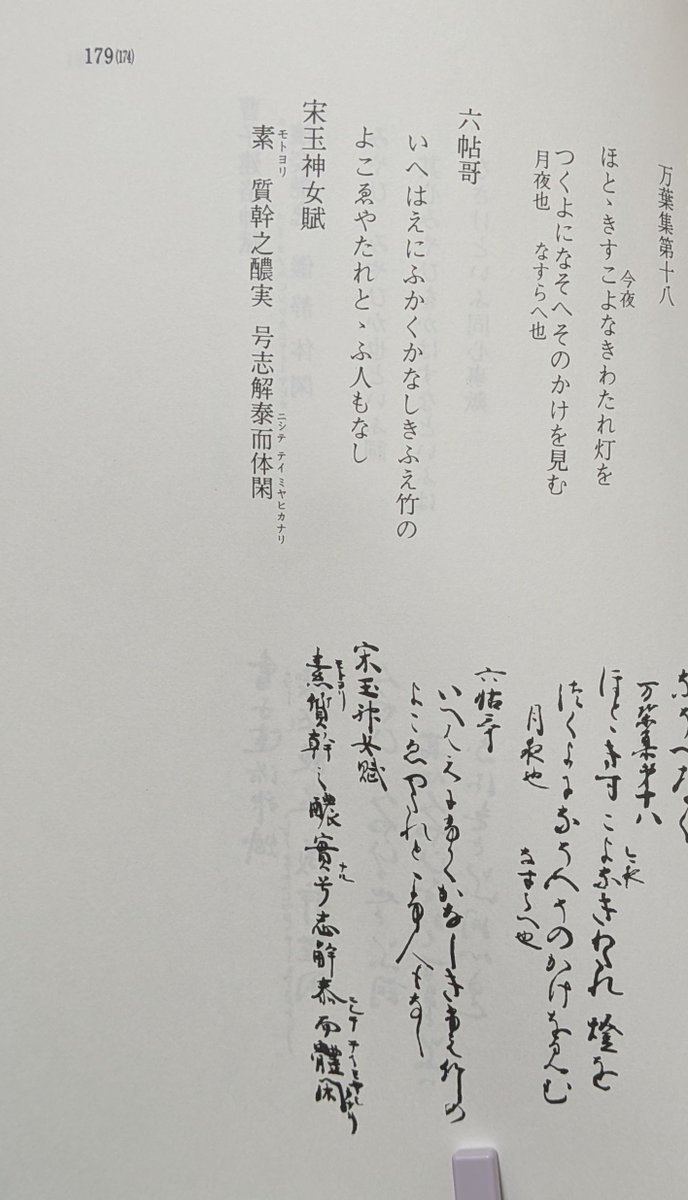 179(174)
万葉集第十八
今夜
ほとゝきすこよなきわたれ灯を
つくよになそへそのかけを見む
月夜也　なすらへ也
六帖哥
いへはえにふかくかなしきふえ竹の
よこゑやたれとゝふ人もなし
宋玉神女賦
モトヨリ　ニシテ　テイ　ミヤヒカナリ
素　質幹之醲実　号志解泰而体閑
万葉集第十八
今夜
ほとゝきすこよなきわたれ燈を
つくよになそへそのかけを見む
月夜也　なすらへ也
六帖哥
いへはえにふかくかなしきふえ竹の
よこゑやたれとゝふ人もなし
宋玉神女賦
モトヨリ　ナル　ニシテ　テイ
素質幹之醲實号志解泰而體閑